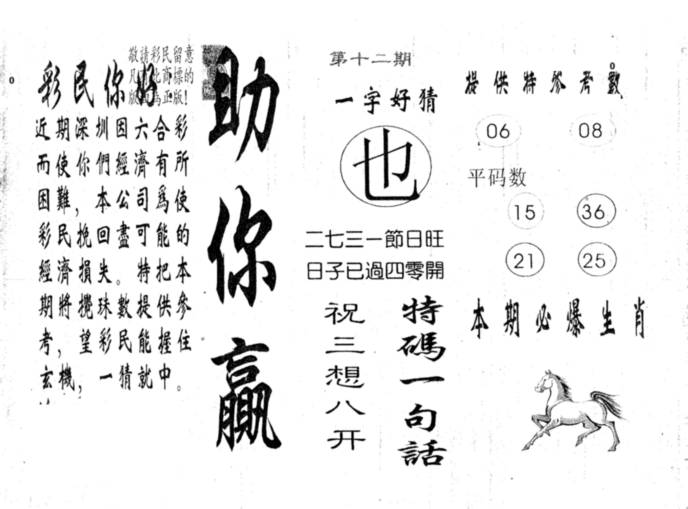 敬請彩民留意
彩民你好
近期深圳因六合彩
而使你們經濟有所
困難，本公司爲使
彩民挽回盡可能的
經濟損失。特把本
期將攪珠數提供參
考，望彩民能握住
玄機，一猜就中。
助你贏
第十二期
一字好猜
也
二七三一節日旺
日子已過四零開
特碼一句話
祝三想八开
提供特參考數
06 08
平码数
15 36
21 25
本期必爆生肖